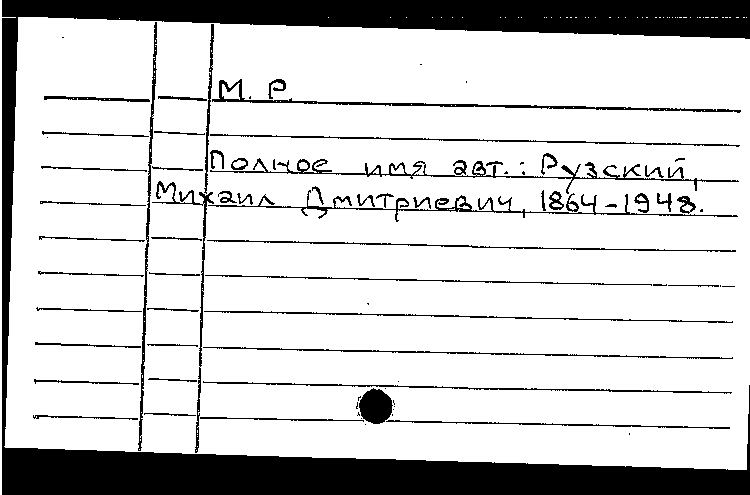 М. Р.
Полное имя авт.: Рузский,
Михаил Дмитриевич, 1864-1948.